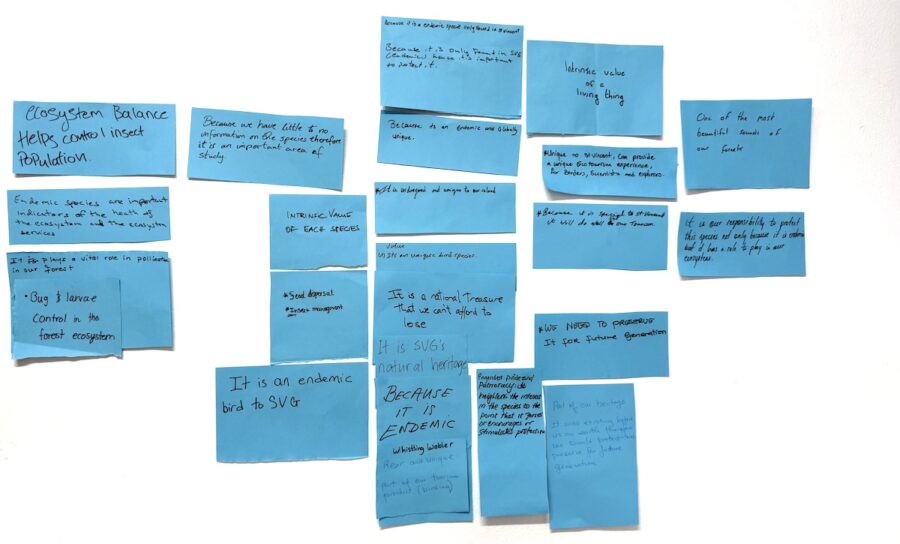 ecosystem Balance
Helps control insect
Population.
Endemic species are important
indicators of the heath of
the ecosystem and the ecosystem
services.
It plays a vital role in pollination
in our forest
• Bug & larvae
control in the
forest ecosystem
Because we have little to no
information on the species therefore
it is an important area of
study.
INTRINSIC VALUE
OF EACH SPECIES
* Seed dispersal
* Insect managment
It is an endemic
bird to SVG
Because it is a endemic species only found in st vincent
Because it is only found in SVG
(endemic) hence it's important
to protect it.
Because its an endemic and globally
unique.
* It is endangered and unique to our island
Value
Its an unique bird species.
It is a national Treasure
that we can't afford to
lose
It is SVG's
natural heritage
BECAUSE
IT IS
ENDEMIC
Whistling Wabler
Rear and unique
part of our tourism
product (birding)
Intrinsic value
of a
living thing
* Unique to St Vincent, Can provide
a unique Ecotourism experience,
for Birders, Scientists and explorers.
* Because it is special to st vincent
it will do well to our Tourism.
* WE NEED TO PRESERVE
It for future generation
pride and
heighten the interest
in the species to the
point that it forces
or encourages or
stimulates protection
Part of our heritage
It was existing before
us
preserve for future
generation
One of the most
beautiful sounds of
our forests
it is our responsibility to protect
this species not only because it is endemic
but it has a role to play in our
ecosystem.